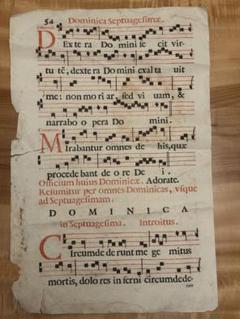 54 Dominica Septuagesimæ.
DExtera Domini fe cit vir-
tu tē, dextera Domini exalta uit
me: non mori ar, sed vi uam, &
narrabo opera Do mini.
Mirabantur omnes de his, quæ
procede bant de o re De i. Adorate.
Officium huius Dominicæ.
Resumitur per omnes Dominicas, vsque
ad Septuagesimam.
DOMINICA
in Septuagesima. Introitus.
Circumde de runt me ge mitus
mortis, dolo res in ferni circumdede-